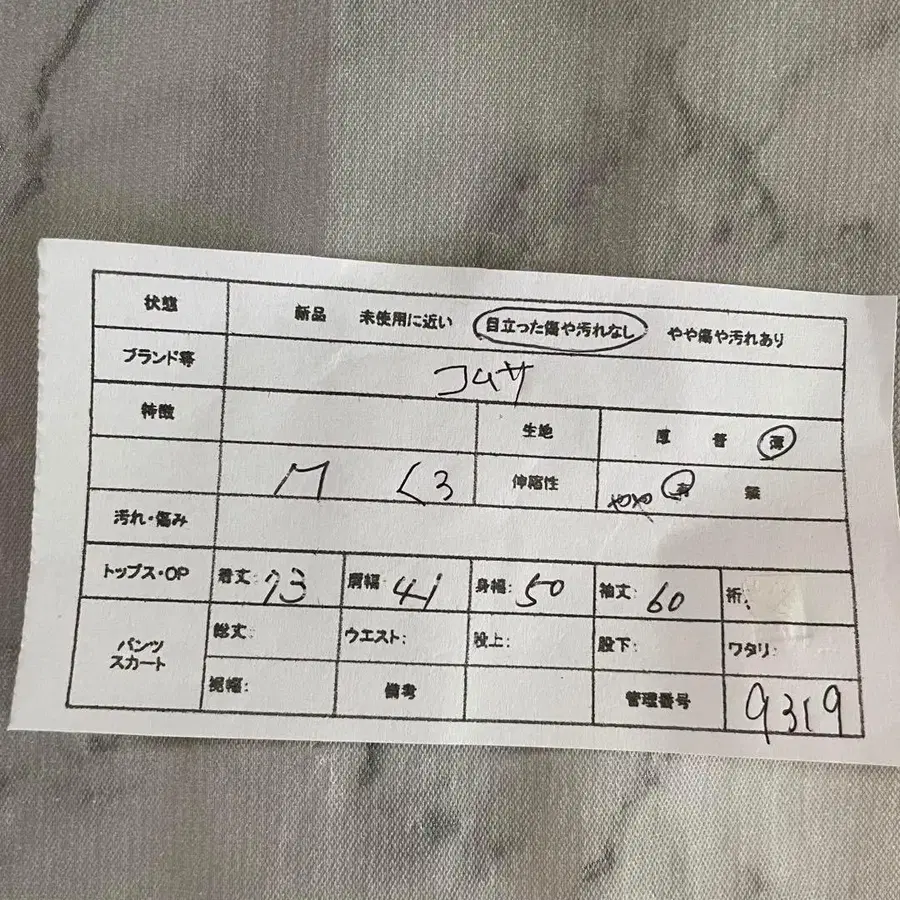 状態 新品 未使用に近い 目立った傷や汚れなし やや傷や汚れあり
ブランド等 コムサ
特徴 生地 厚 普 薄
M くろ 伸縮性 やや 有 無
汚れ・傷み
トップス・OP 着丈: 73 肩幅: 41 身幅: 50 袖丈: 60 裄:
パンツ スカート 総丈: ウエスト: 股上: 股下: ワタリ:
裾幅: 備考 管理番号 9319